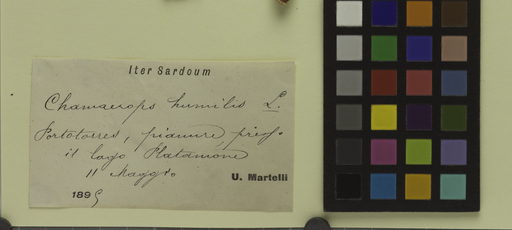 Iter Sardoum
Chamaerops humilis L.
Portotorres, pianure presso
il lago Platamone
11 Maggio
U. Martelli
1895